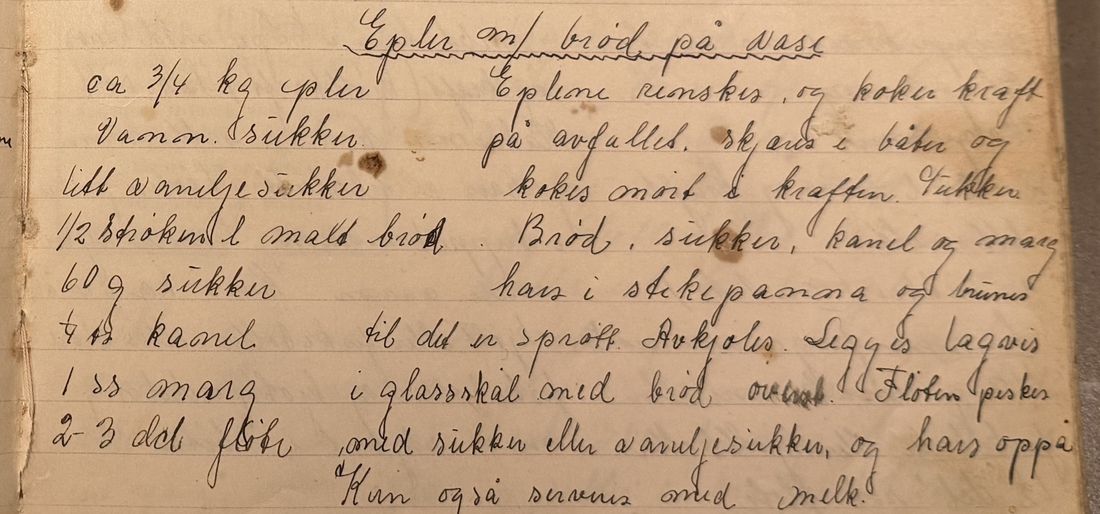 Epler m/ brød på vase
ca 3/4 kg epler Eplene renskes, og koker kraft
Vann. sukker. på avfallet. skjæres i båter og
litt vaniljesukker kokes mørt i kraften. Sukker
1/2 strøken l malt brød. Brød, sukker, kanel og marg
60 g sukker haes i stekepanna og brunes
1/4 ts kanel til det er sprøtt. Avkjøles. Legges lagvis
1 ss marg i glasskål med brød øverst. Fløten piskes
2-3 del fløte med sukker eller vaniljesukker, og haes oppå
Kan også serveres med melk.